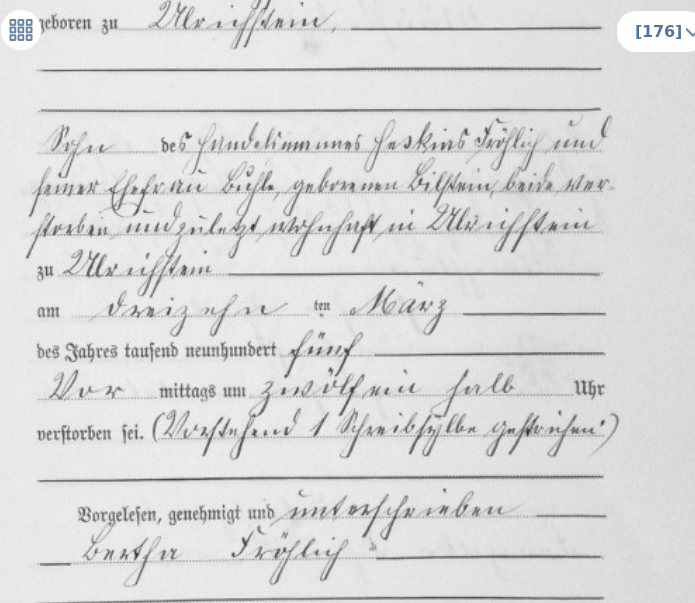 [176]
geboren zu Ulrichstein,
Sohn des Handelsmannes Heskias Fröhlich und
seiner Ehefrau Buhle, geborenen Bilstein, beide ver-
storben und zuletzt wohnhaft in Ulrichstein
zu Ulrichstein
am dreizehn ten März
des Jahres tausend neunhundert fünf
Vor mittags um zwölf ein halb Uhr
verstorben sei. (Vorstehend 1 Schreibsylbe gestrichen.)
Vorgelesen, genehmigt und unterschrieben
Bertha Fröhlich